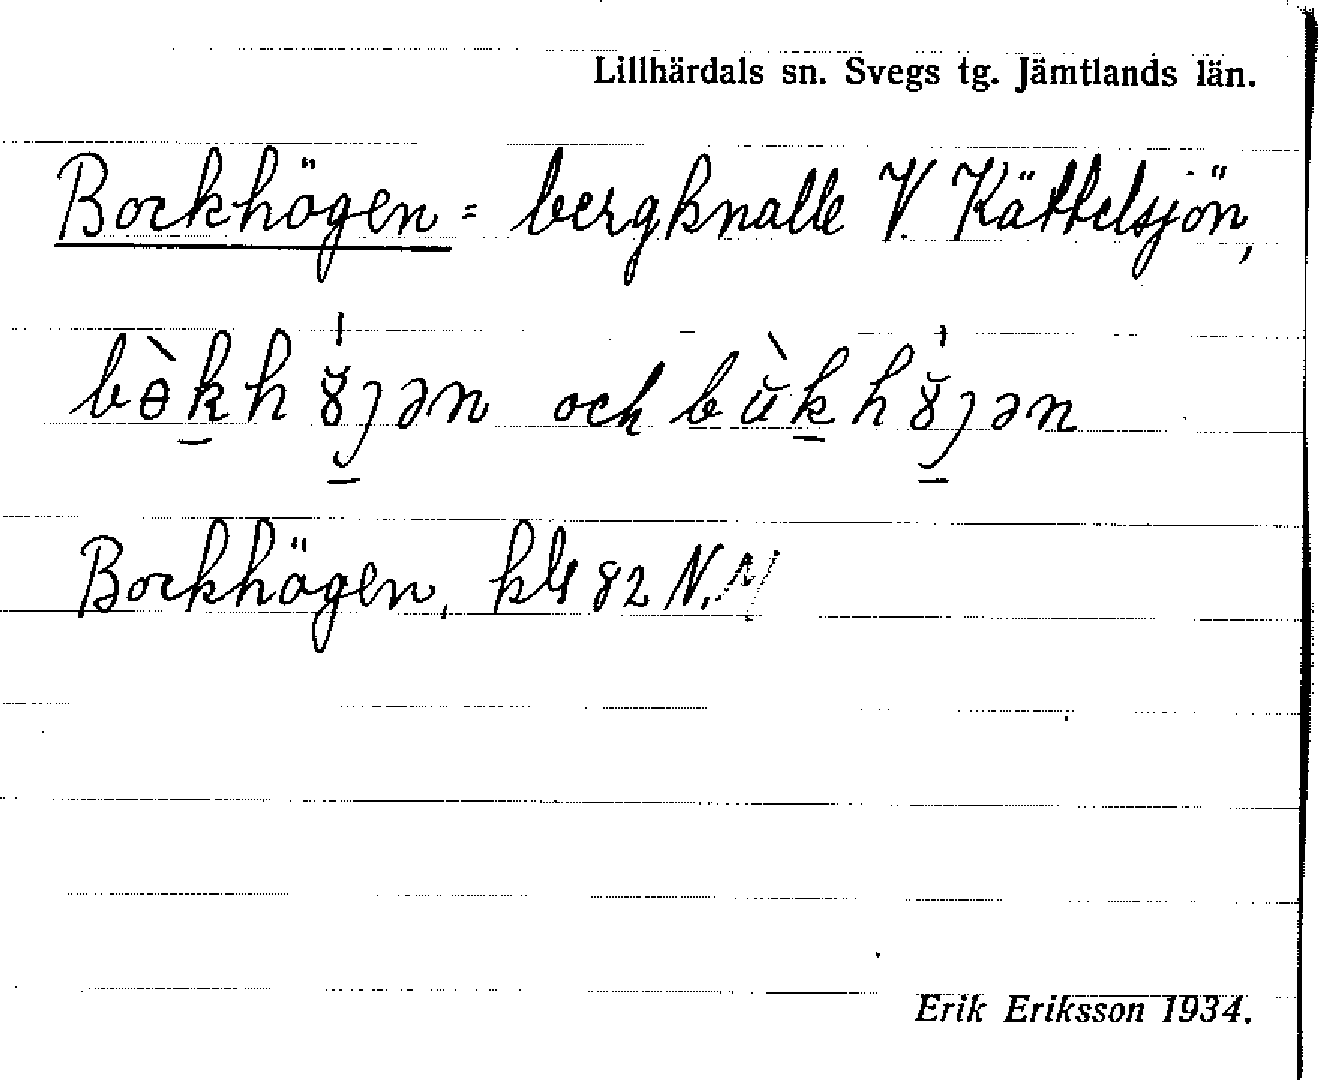 Lillhärdals sn. Svegs tg. Jämtlands län.
Bockhögen = bergknalle V. Kättelsjön,
bɵ̀kh ɣ̆ȷən och bùkh ɣ̆ȷən
Bockhögen, kbl 82 N.
Erik Eriksson 1934.